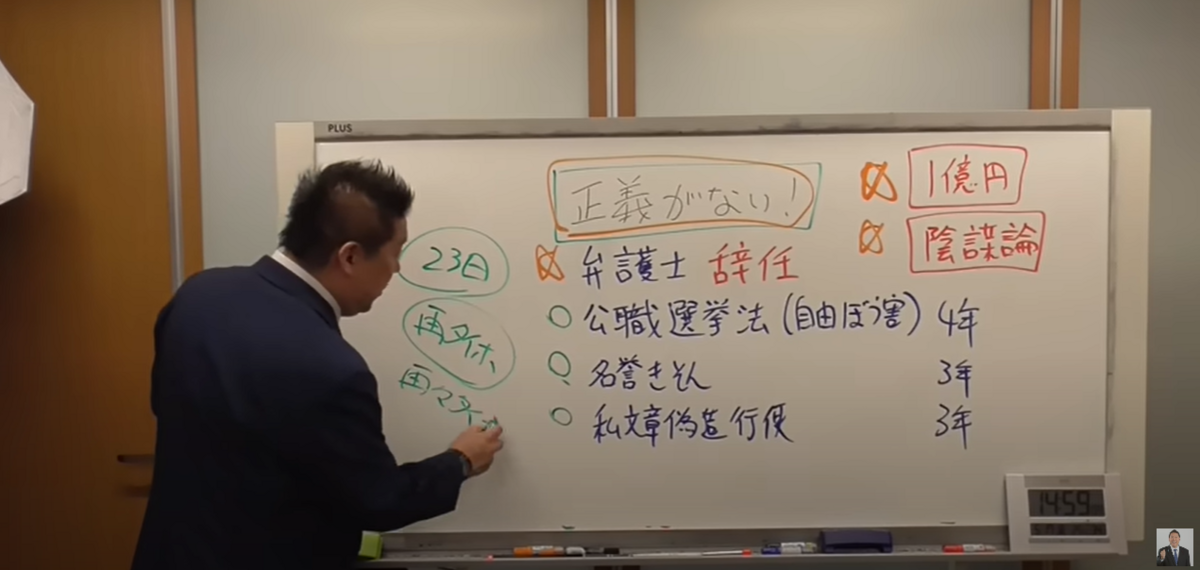 PLUS
正義がない!
1億円
陰謀論
弁護士 辞任
23日
公職選挙法(自由ぼう害) 4年
再タイホ
名誉きそん 3年
再々タイホ
私文章偽造行使 3年
14:59